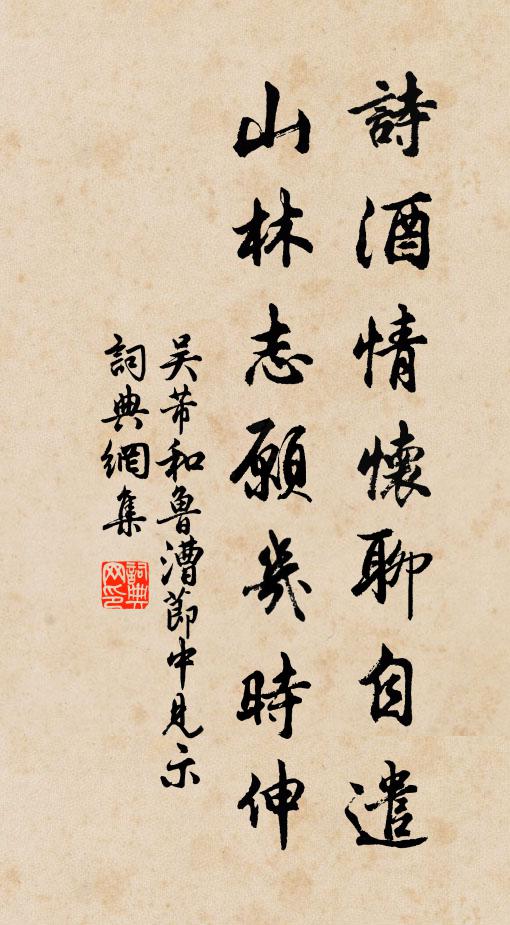 詩酒情懷聊自遣
山林志願幾時伸
吴芾和魯漕節中見示
詞典網集
詞典
网印